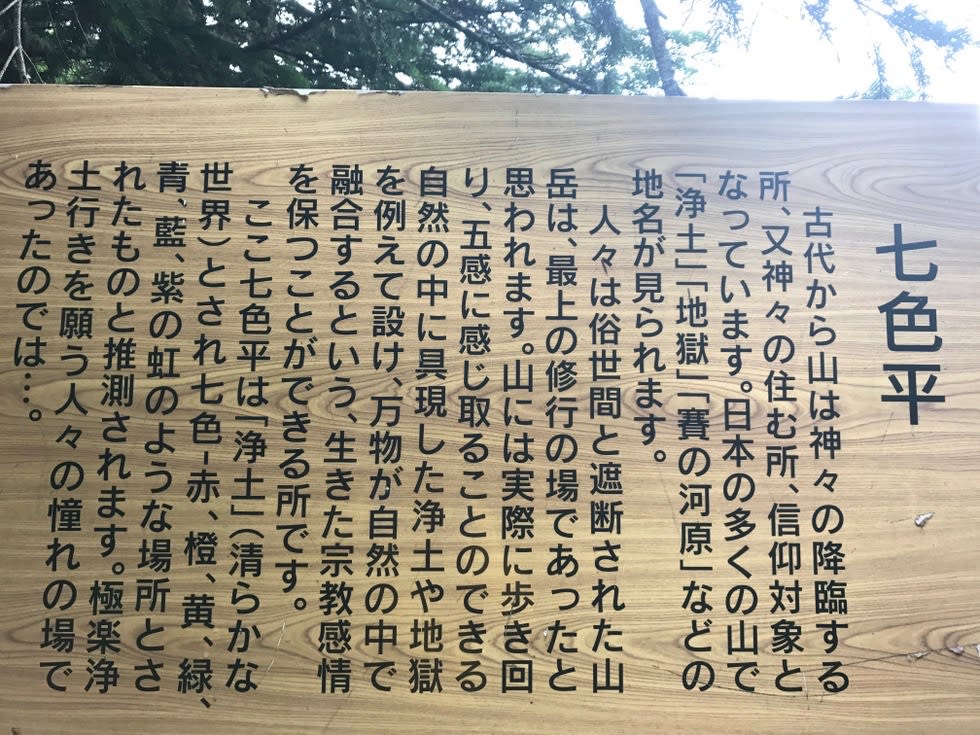 七色平
古代から山は神々の降臨する
所、又神々の住む所、信仰対象と
なっています。日本の多くの山で
「浄土」「地獄」「賽の河原」などの
地名が見られます。
人々は俗世間と遮断された山
岳は、最上の修行の場であったと
思われます。山には実際に歩き回
り、五感に感じ取ることのできる
自然の中に具現した浄土や地獄
を例えて設け、万物が自然の中で
融合するという、生きた宗教感情
を保つことができる所です。
ここ七色平は「浄土」(清らかな
世界)とされ七色-赤、橙、黄、緑、
青、藍、紫の虹のような場所とさ
れたものと推測されます。極楽浄
土行きを願う人々の憧れの場で
あったのでは…。